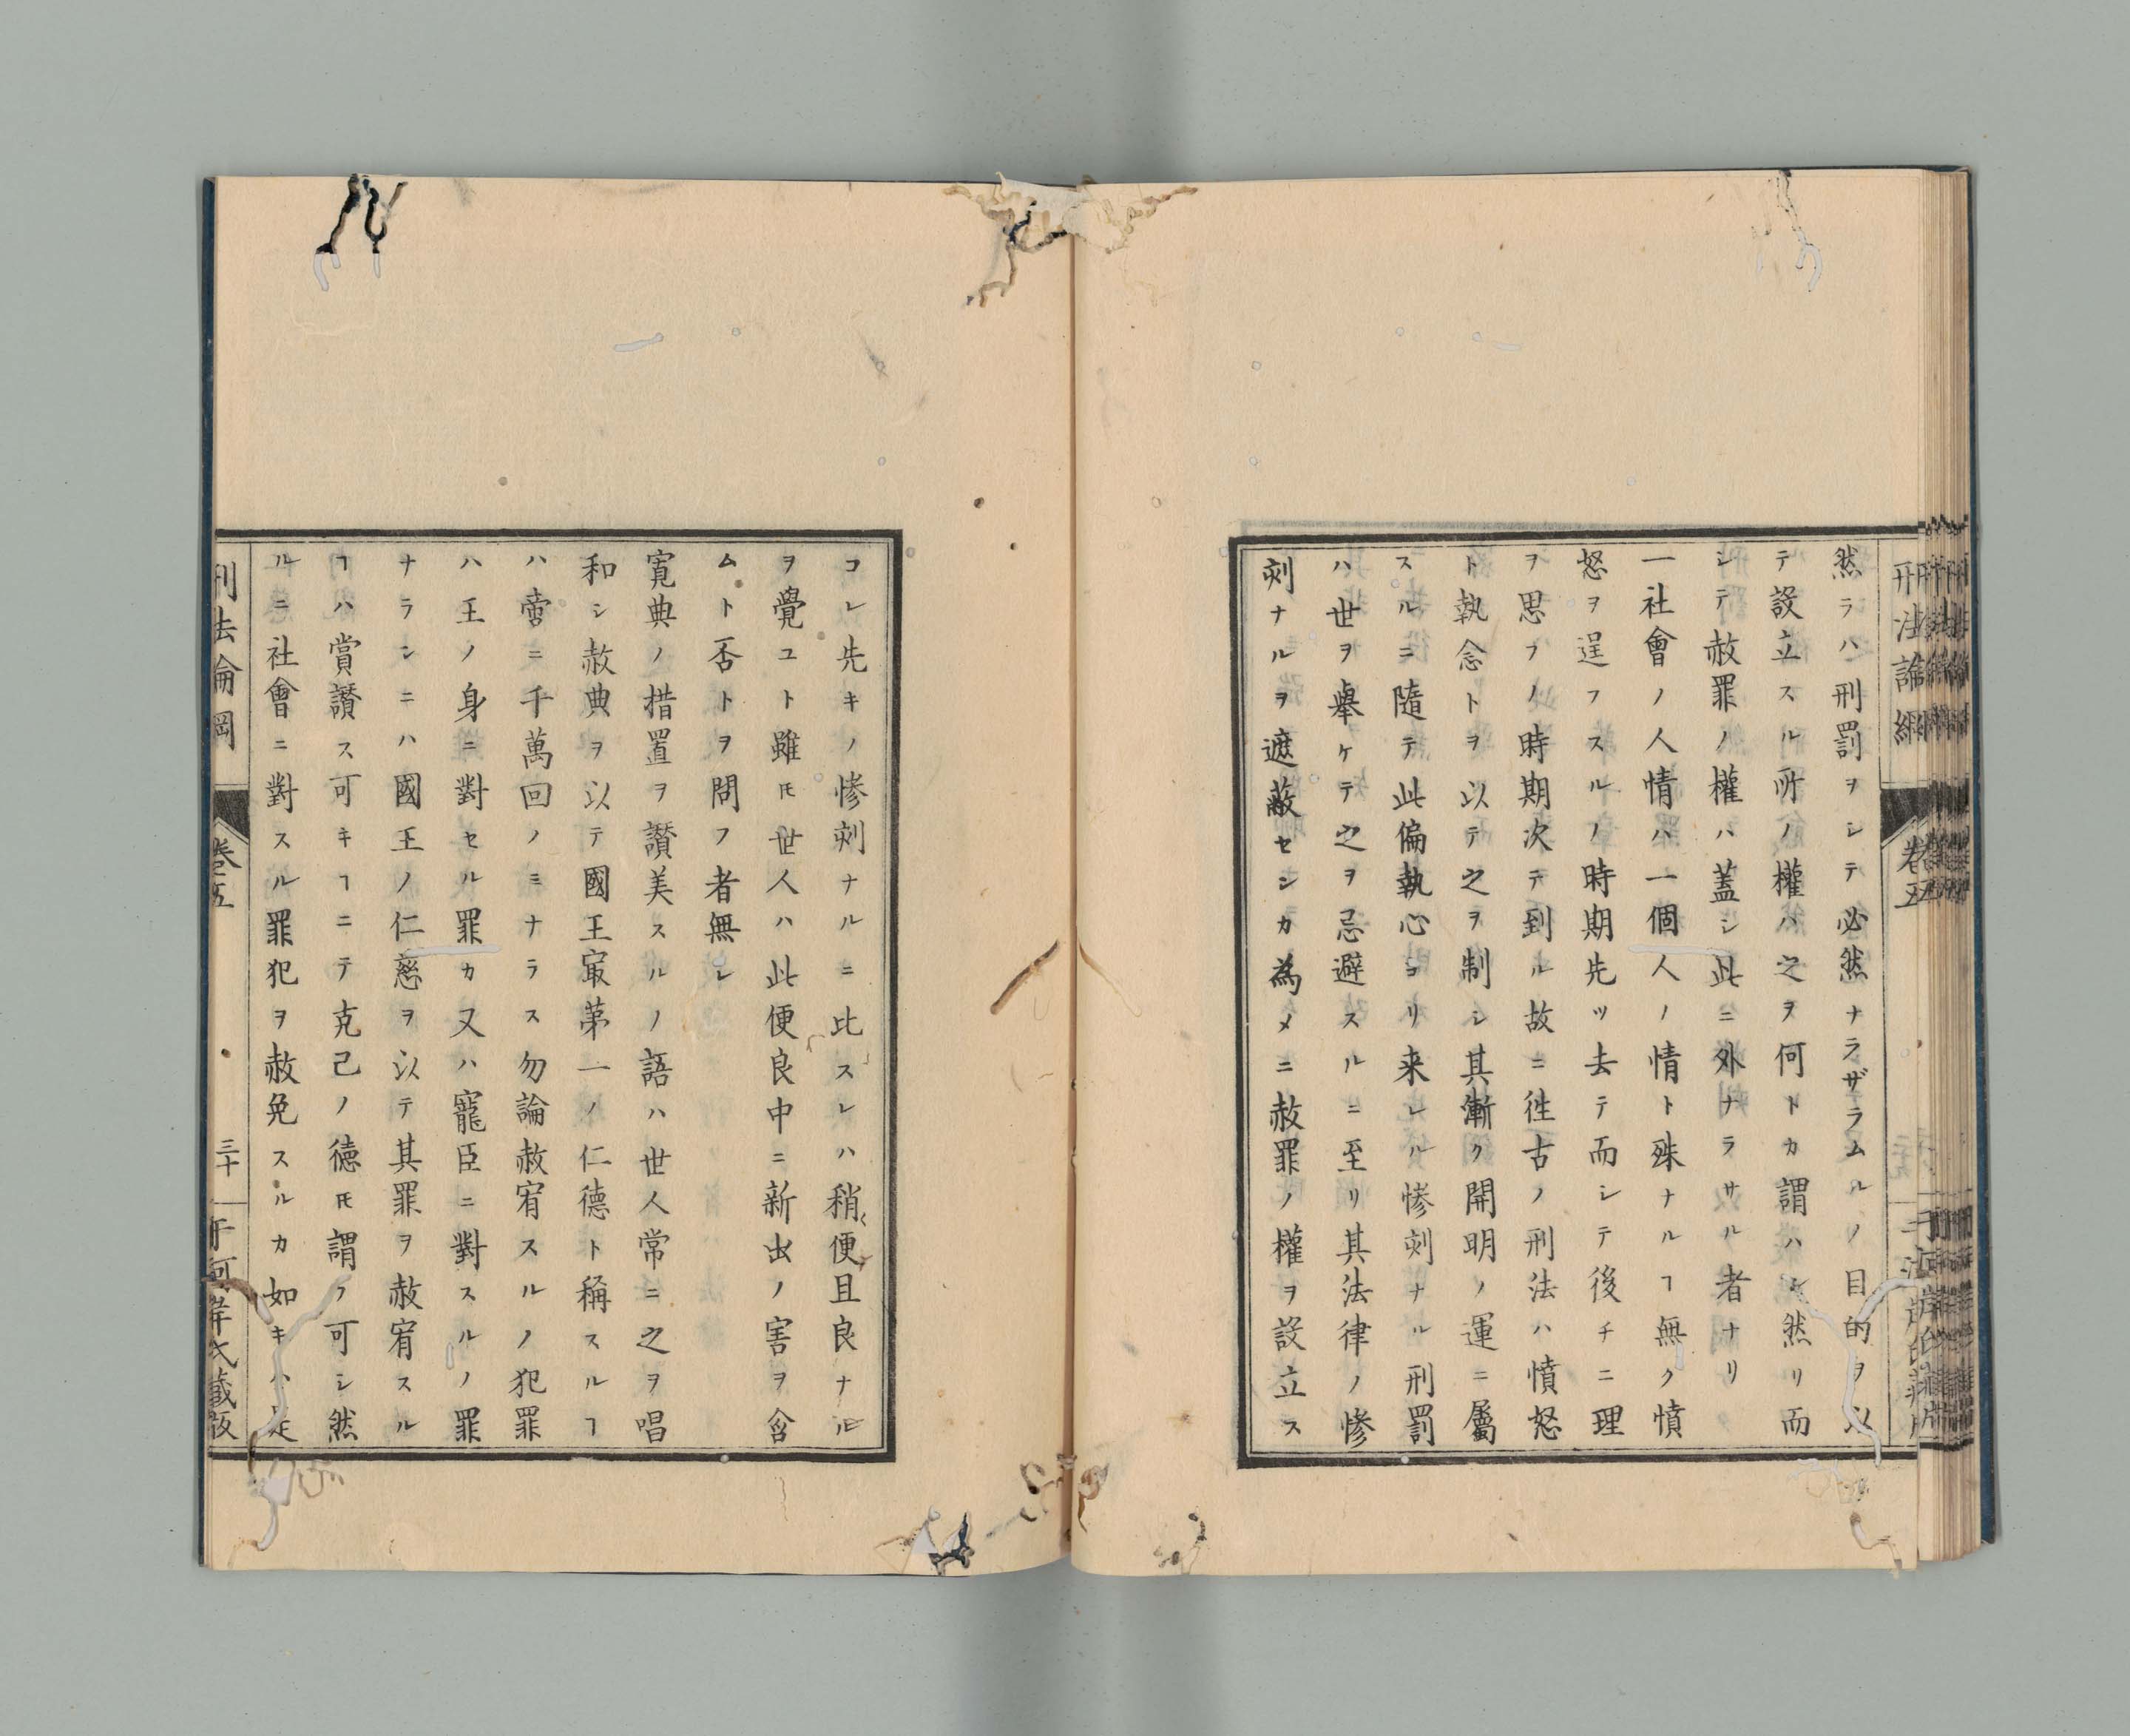 然ラハ刑罰ヲシテ必然ナラザラムルノ目的ヲ以
テ設立スル所ノ權ハ之ヲ何トカ謂ハン然リ而
シテ赦罪ノ權ハ蓋シ此ニ外ナラサル者ナリ
一社會ノ人情ハ一個人ノ情ト殊ナルヿ無ク憤
怒ヲ逞フスルノ時期先ツ去テ而シテ後チニ理
ヲ思フノ時期次テ到ル故ニ徃古ノ刑法ハ憤怒
ト執念トヲ以テ之ヲ制シ其漸ク開明ノ運ニ屬
スルニ隨テ此偏執心ヨリ来レル惨刻ナル刑罰
ハ世ヲ擧ケテ之ヲ忌避スルニ至リ其法律ノ惨
刻ナルヲ遮蔽センカ為メニ赦罪ノ權ヲ設立ス
刑法論綱
卷五
コレ先キノ惨刻ナルニ比スレハ稍便且良ナル
ヲ覺ユト雖𪜈世人ハ此便良中ニ新出ノ害ヲ含
ムト否トヲ問フ者無シ
寛典ノ措置ヲ讃美スルノ語ハ世人常ニ之ヲ唱
和シ赦典ヲ以テ國王㝡第一ノ仁德ト稱スルヿ
ハ啻ニ千萬回ノミナラス勿論赦宥スルノ犯罪
ハ王ノ身ニ對セル罪カ又ハ寵臣ニ對スルノ罪
ナランニハ國王ノ仁慈ヲ以テ其罪ヲ赦宥スル
ヿハ賞讃ス可キヿニテ克己ノ德𪜈謂フ可シ然
ルニ社會ニ對スル罪犯ヲ赦免スルカ如キハ是
刑法論綱
卷五
三十